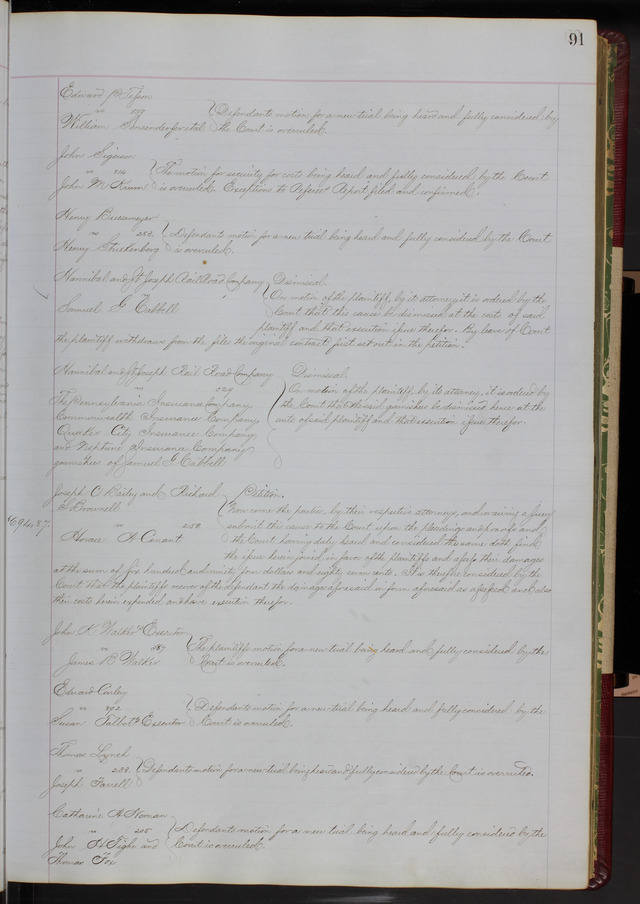 91
Edward P. Tesson
vs 199 Defendants motion for a new trial being heard and fully considered by
William et al the Court is overruled.
John Sigerson
vs 214 The motion for security for costs being heard and fully considered by the Court
John M. Krum is overruled. Exceptions to Referees Report filed and confirmed.
Henry Buesmeyer
vs 253. Defendants motion for a new trial being heard and fully considered by the Court
Henry Stuckenberg is overruled.
Hannibal and St Joseph Rail Road Company Dismissal
vs On motion of the plaintiff, by its attorney it is ordered by the
Samuel G Cabbell Court that this cause be dismissed at the costs of said
plaintiff and that execution issue therefor. By leave of Court
the plaintiff withdraws from the files the original contract first set out in the petition.
Hannibal and St Joseph Rail Road Company Dismissal.
vs 229 On motion of the plaintiff, by its attorney, it is ordered by
The Pennsylvania Insurance Company, the Court that the said garnishees be dismissed hence at the
Commonwealth Insurance Company, costs of said plaintiff and that execution issue therefor.
Quaker City Insurance Company
and Neptune Insurance Company
garnishees of Samuel G Cabbell
Joseph O Bailey and Richard Petition.
G Brownell Now come the parties, by their respective attorneys, and waiving a Jury
$694.87. vs 258 submit this cause to the Court upon the pleadings and proofs and
Horace A Conant the Court having duly heard and considered the same doth find
the issue herein joined in favor of the plaintiffs and assess their damages
at the sum of six hundred and ninety four dollars and eighty seven cents. It is therefore considered by the
Court that the plaintiffs recover of the defendant the damages aforesaid in form aforesaid as assessed and also
their costs herein expended and have execution therefor.
John K Walker's Executor
vs 287 The plaintiffs motion for a new trial being heard and fully considered by the
James B Walker Court is overruled.
Edward Conley
vs 192 Defendants motion for a new trial being heard and fully considered by the
Susan Talbot's Executor Court is overruled.
Thomas Lynch
vs 288 Defendants motion for a new trial being heard and fully considered by the Court is overruled.
Joseph Farrell
Catharine A Noman
vs 205 Defendants motion for a new trial being heard and fully considered by the
John W Tighe and Court is overruled.
Thomas Fox